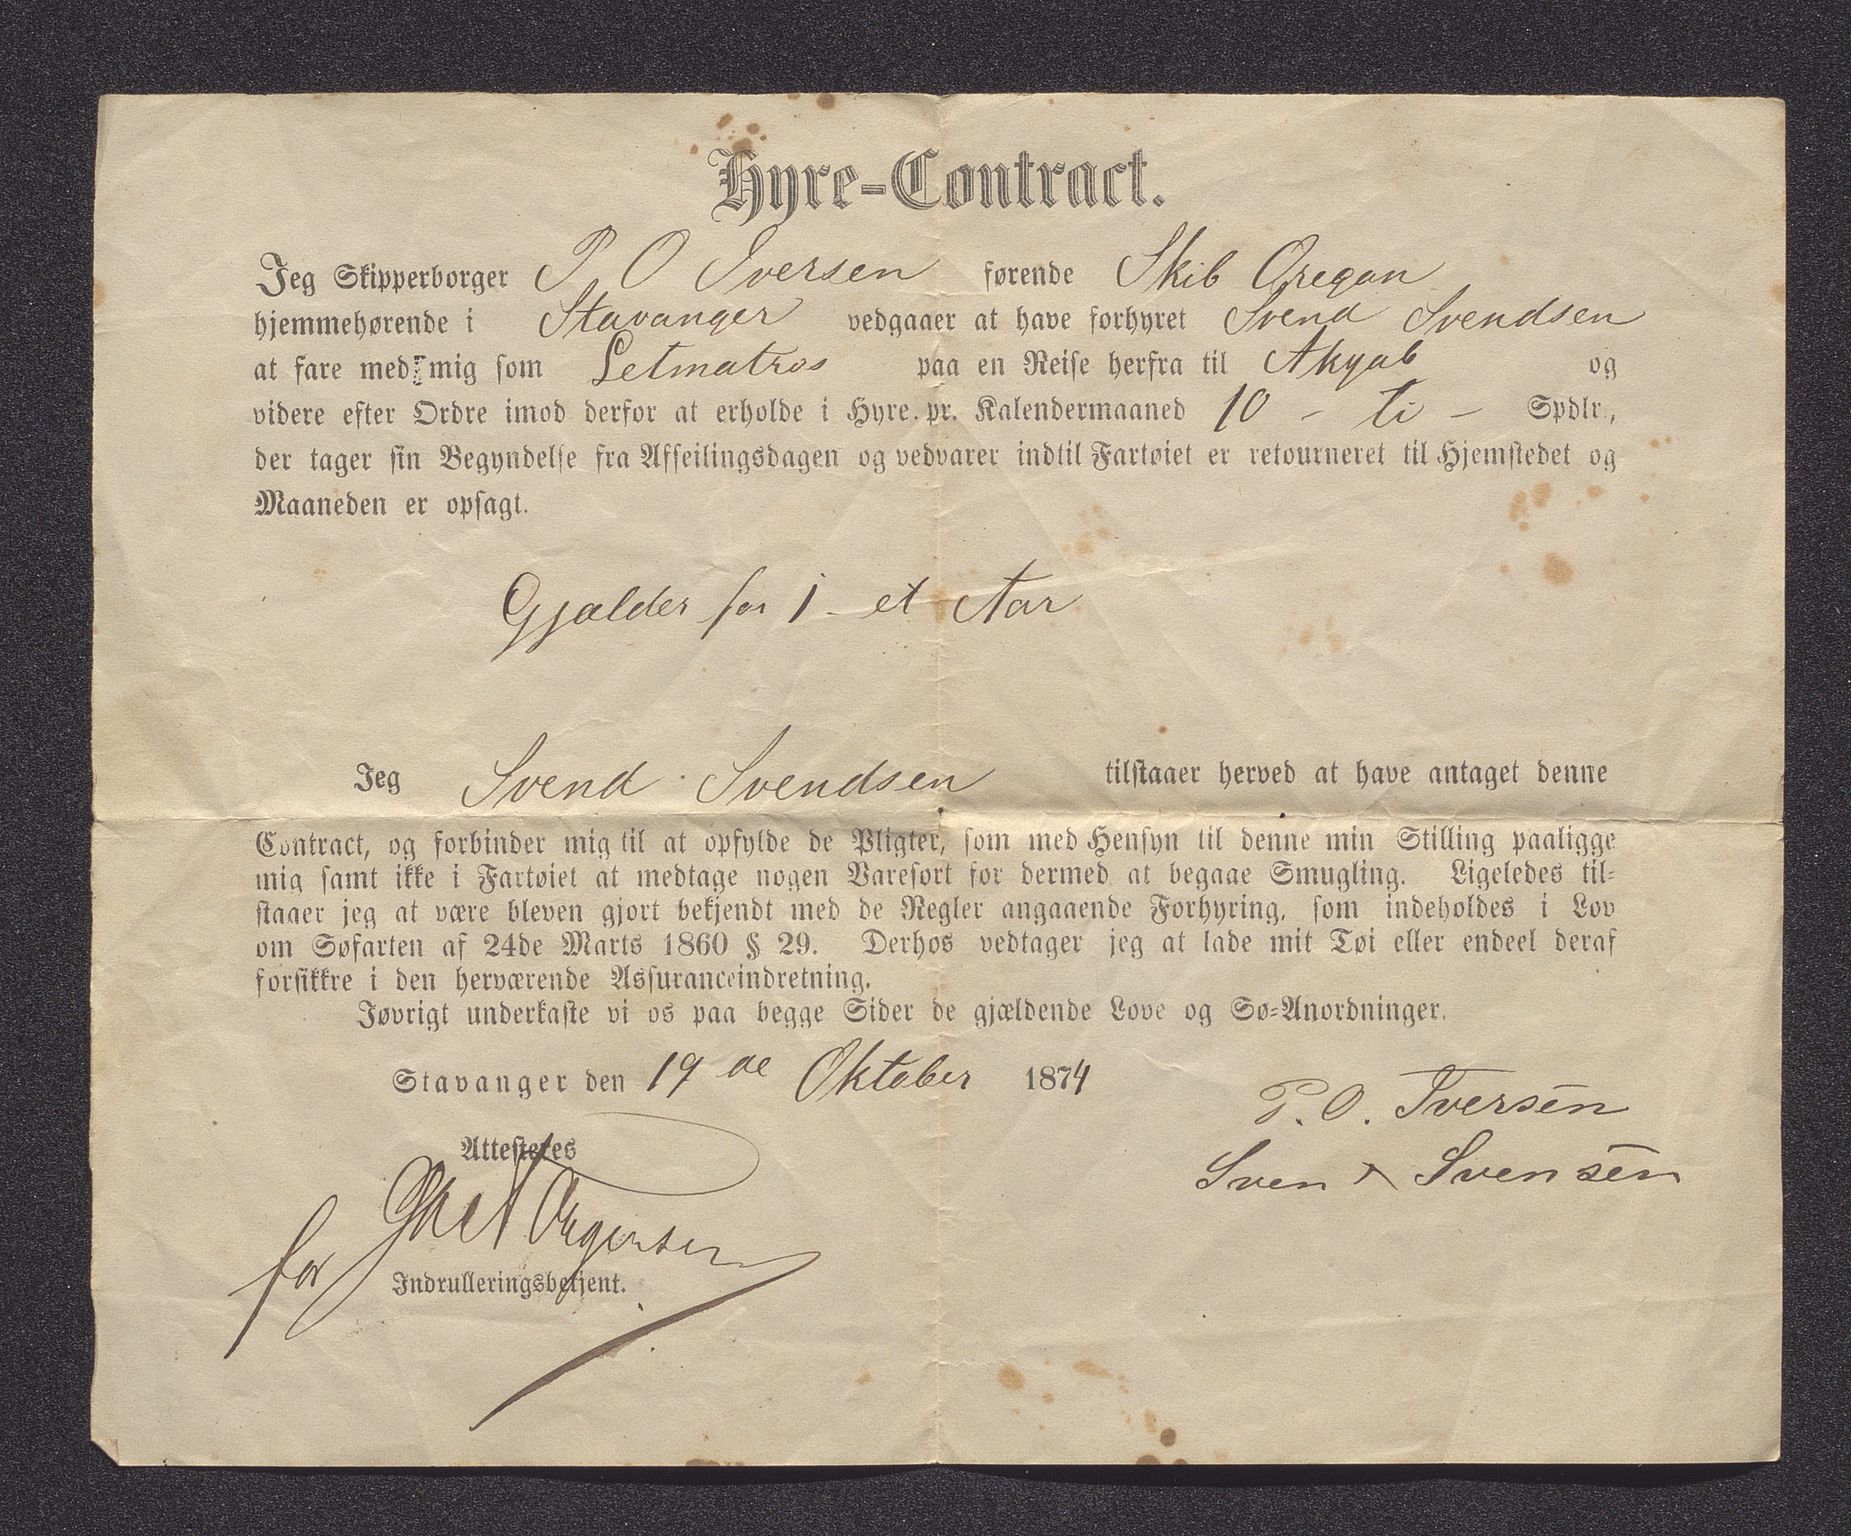 Hyre-Contract.
Jeg Skipperborger P O Iversen førende Skib Oregon
hjemmehørende i Stavanger vedgaaer at have forhyret Svend Svendsen
at fare med mig som Letmatros paa en Reise herfra til Akyab og
videre efter Ordre imod derfor at erholde i Hyre pr. Kalendermaaned 10 - ti - Spdlr.,
der tager sin Begyndelse fra Afseilingsdagen og vedvarer indtil Fartøiet er retourneret til Hjemstedet og
Maaneden er opsagt.
Gjælder for 1 - et Aar
Jeg Svend Svendsen tilstaaer herved at have antaget denne
Contract, og forbinder mig til at opfylde de Pligter, som med Hensyn til denne min Stilling paaligge
mig samt ikke i Fartøiet at medtage nogen Varesort for dermed at begaae Smugling. Ligeledes til-
staaer jeg at være bleven gjort bekjendt med de Regler angaaende Forhyring, som indeholdes i Lov
om Søfarten af 24de Marts 1860 § 29. Derhos vedtager jeg at lade mit Tøi eller endeel deraf
forsikkre i den herværende Assuranceindretning.
Iøvrigt underkaste vi os paa begge Sider de gjældende Love og Sø-Anordninger.
Stavanger den 19 de Oktober 1874
P. O. Iversen
Attesteres
Sven x Svensen
for
Indrulleringsbetjent.